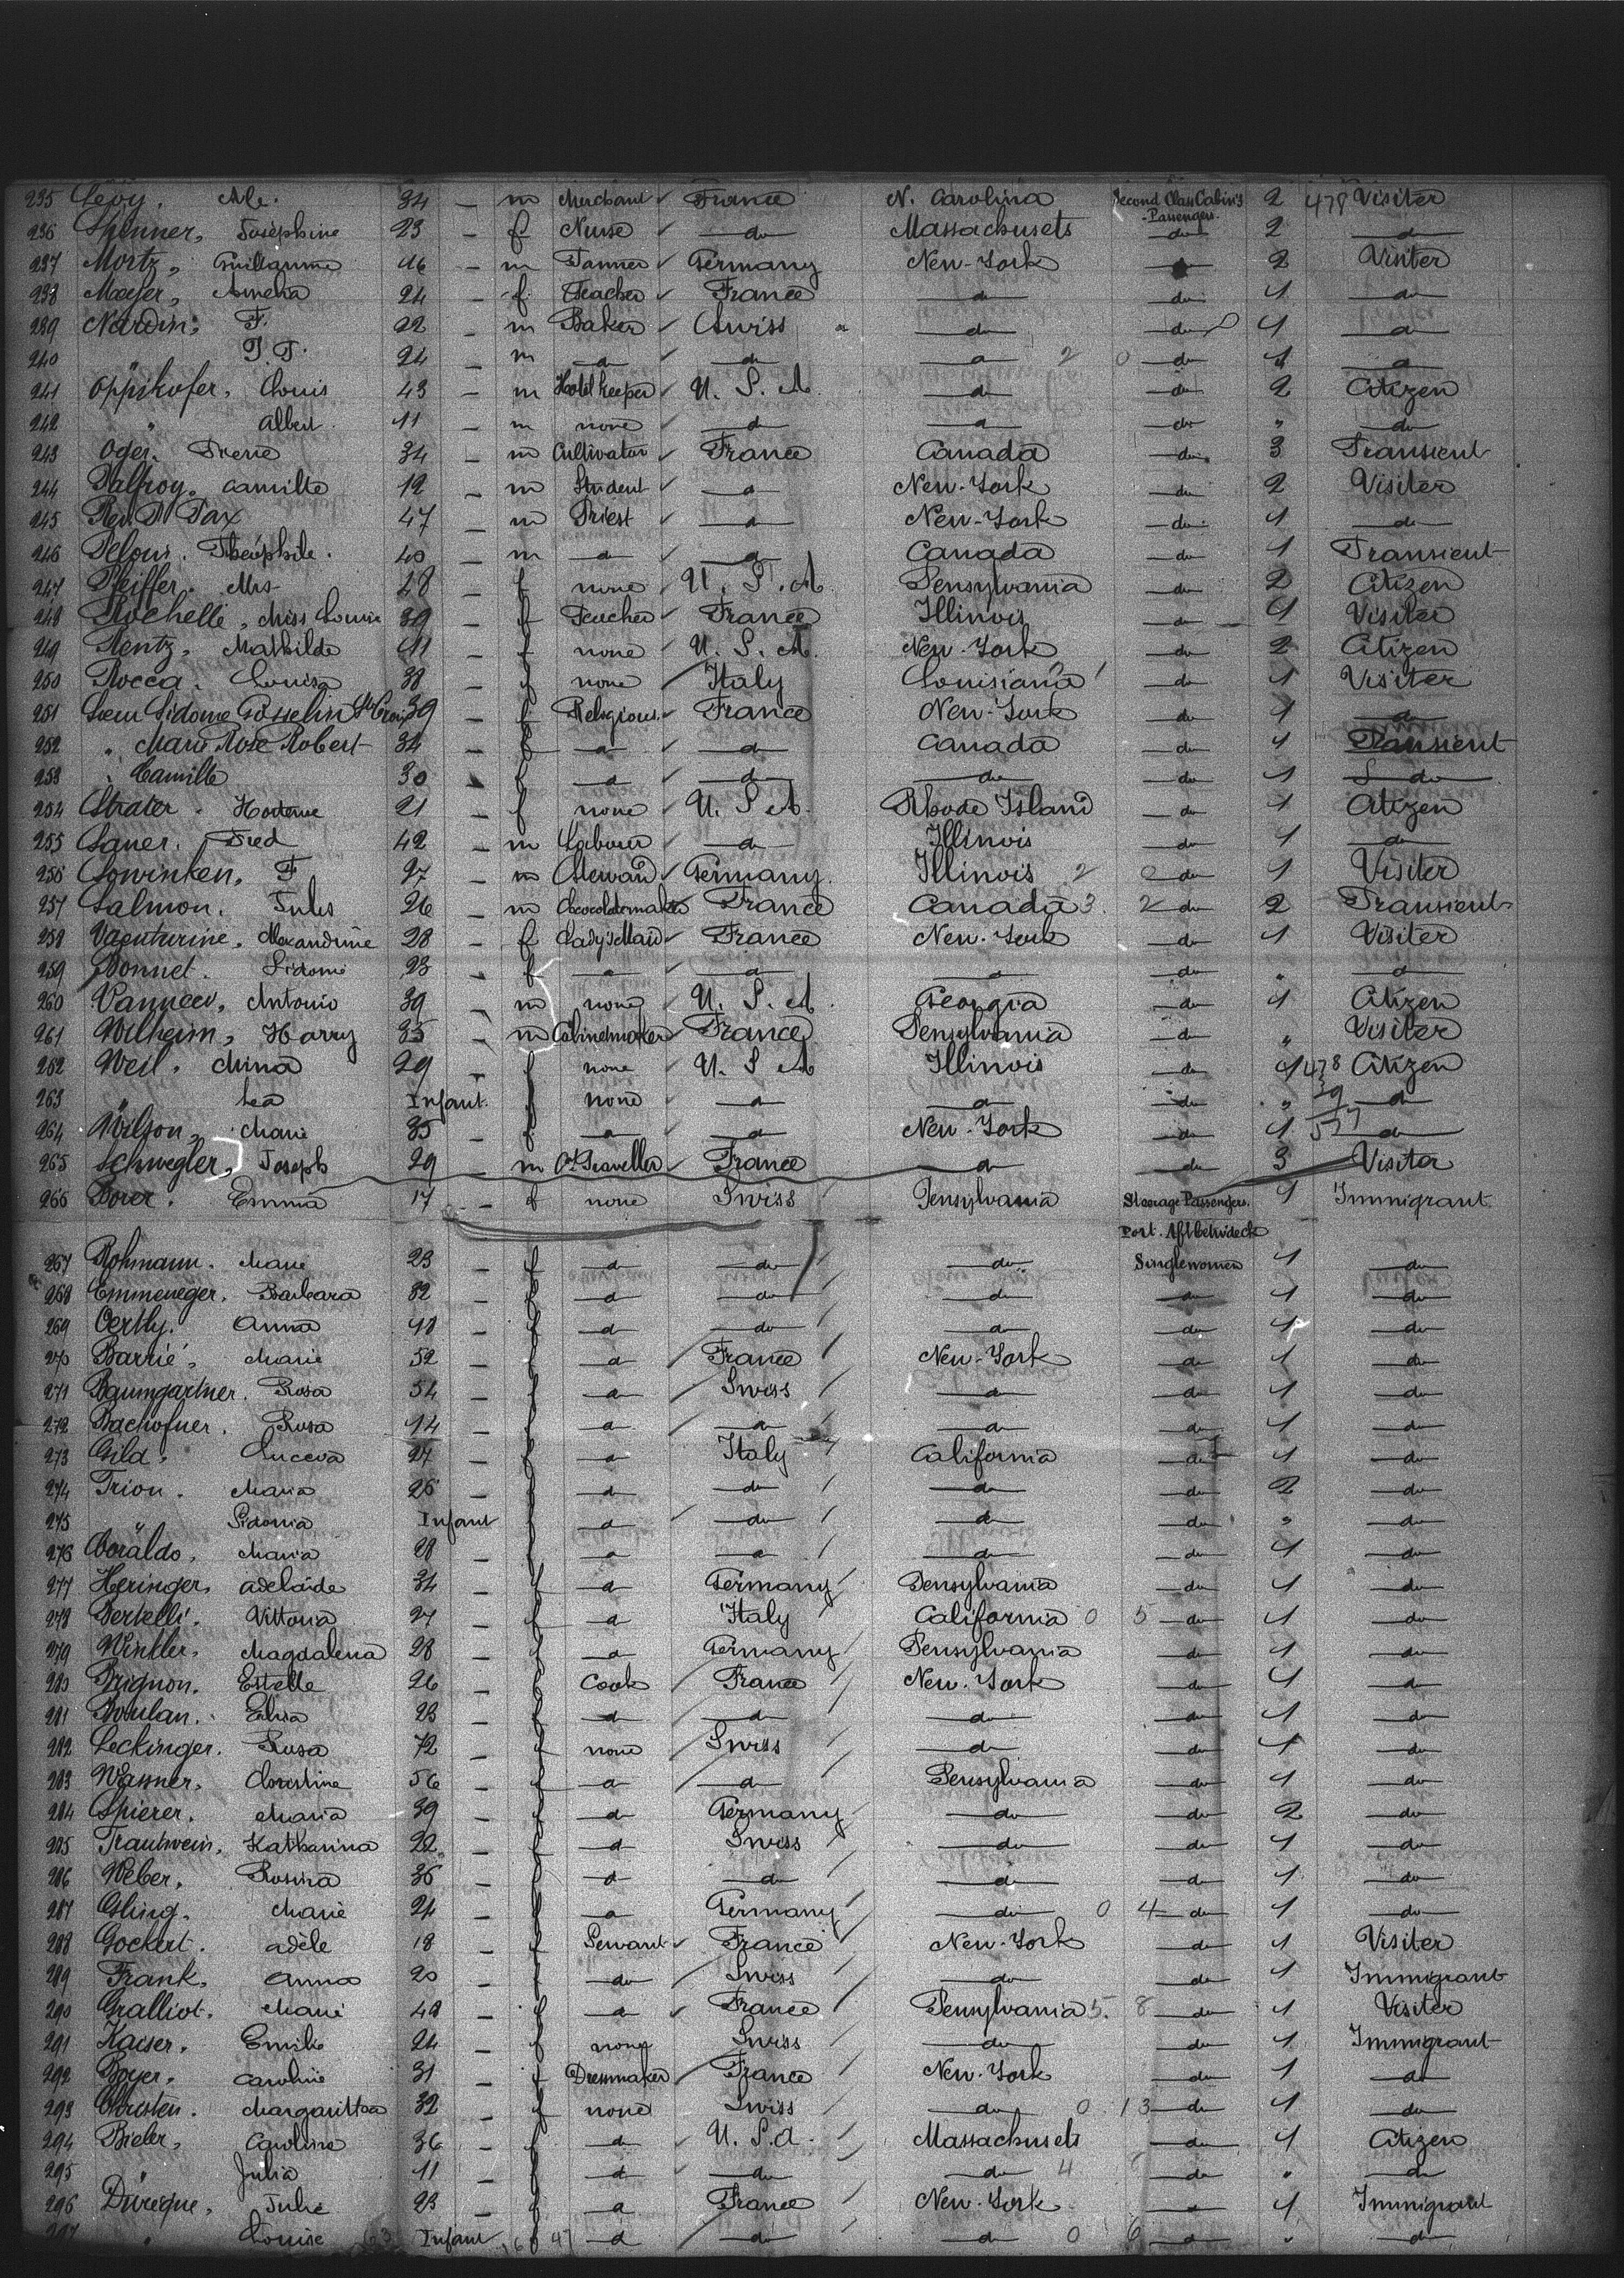 235 Levy, Ale. 34 — m Merchant France N. Carolina Second Class Cabin's Passengers 2 478 Visiter
236 Spinner, Joséphine 23 — f Nurse do Massachusets do 2 do
237 Mortz, Guillaume 46 — m Tanner Germany New-York do 2 Visiter
238 Mayer, Amelia 24 — f Teacher France do do 1 do
239 Nardin, F. 22 m Baker Swiss do do 1 do
240 " 24 m do do do 2 0 do 1 do
241 Oppikofer, Louis 43 — m Hotel keeper U. S. A. do do 2 Citizen
242 " Albert 11 — m none do do do " do
243 Oger, Pierre 34 — m Cultivator France Canada do 3 Transient
244 Palfroy, Camille 12 — m Student do New-York do 2 Visiter
245 Rev. P. Pax 47 — m Priest do New-York do 1 do
246 Pelous, Théophile 40 — m do do Canada do 1 Transient
247 Pfeiffer, Mrs 48 — f none U. S. A. Pensylvania do 2 Citizen
248 Rochelle, Miss Louise 39 — f Teacher France Illinois do 1 Visiter
249 Rentz, Mathilde 41 — f none U. S. A. New-York do 2 Citizen
250 Rocca, Louisa 38 — f none Italy Louisiana do 1 Visiter
251 Soeur Sidonie Gosselin St Croix 39 f Religious France New-York do 1 do
252 " Marie Rose Robert 34 — f do do Canada do 1 Transient
253 " Camille 30 f do do do do 1 do
254 Strater, Hortense 21 — f none U. S. A. Rhode Island do 1 Citizen
255 Sauer, Fred 42 — m Labourer do Illinois do 1 do
256 Sowinken, F 27 — m Steward Germany Illinois 2 0 do 1 Visiter
257 Salmon, Jules 26 — m Chocolatemaker France Canada 3. 2 do 2 Transient
258 Vaputurine, Alexandrine 28 — f Lady's Maid France New-York do 1 Visiter
259 Bonnet, Sidonie 23 — f do do do do " do
260 Antonio 39 — m none U. S. A. Georgia do 1 Citizen
261 Wilheim, Harry 35 — m Cabinetmaker France Pensylvania do " Visiter
262 Weil, Mina 29 — f none U. S. A Illinois do 1 478 Citizen
263 " Lea Infant f none do do do " 39 do
264 Wilson, Marie 35 — f do do New-York do 1 517 do
265 Schwegler, Joseph 29 — m Traveller France do do 3 Visiter
266 Borer, Emma 17 — f none Swiss Pensylvania Steerage Passengers 1 Immigrant
Port. Aftbetwdeck
267 Rohmann, Marie 23 — f do do do Singlewomen 1 do
268 Emmeneger, Barbara 32 — f do do do do 1 do
269 Oertly, Anna 48 — f do do do do 1 do
270 Barrié, Marie 52 — f do France New-York do 1 do
271 Baumgartner, Rosa 54 — f do Swiss do do 1 do
272 Bachofner, Rosa 14 — f do do do do 1 do
273 Gild, Luceva 27 — f do Italy California do 1 do
274 Trion, Maria 26 — f do do do do 2 do
275 " Sidonia Infant f do do do do " do
276 Coraldo, Maria 28 — f do do do do 1 do
277 Heringer, Adelaïde 34 — f do Germany Pensylvania do 1 do
278 Bertelli, Vittoria 27 — f do Italy California 0 5 do 1 do
279 Winkler, Magdalena 28 — f do Germany Pensylvania do 1 do
280 Grignon, Estelle 26 — f Cook France New-York do 1 do
281 Boulan, Elisa 23 — f do do do do 1 do
282 Leckinger, Rosa 72 — f none Swiss do do 1 do
283 Wasmer, Clorestine 56 — f do do Pensylvania do 1 do
284 Spierer, Maria 39 — f do Germany do do 2 do
285 Trautwein, Katharina 22 — f do Swiss do do 1 do
286 Weber, Rosina 36 — f do do do do 1 do
287 Gling, Marie 24 — f do Germany do 0 4 do 1 do
288 Gockert, Adèle 18 — f Servant France New-York do 1 Visiter
289 Frank, Anna 20 — f do Swiss do do 1 Immigrant
290 Gralliot, Marie 48 — f do France Pensylvania 5. 8 do 1 Visiter
291 Kaiser, Emilie 24 — f none Swiss do do 1 Immigrant
292 Boyer, Caroline 31 — f Dressmaker France New-York do 1 do
293 Christen, Margaritta 32 — f none Swiss do 0 13 do 1 do
294 Bieler, Caroline 36 — f do U. S. A. Massachusets do 1 Citizen
295 " Julia 11 — f do do do 4 do " do
296 Julie 23 — f do France New-York do 1 Immigrant
297 " Louise Infant f do do do 0 6 do " do